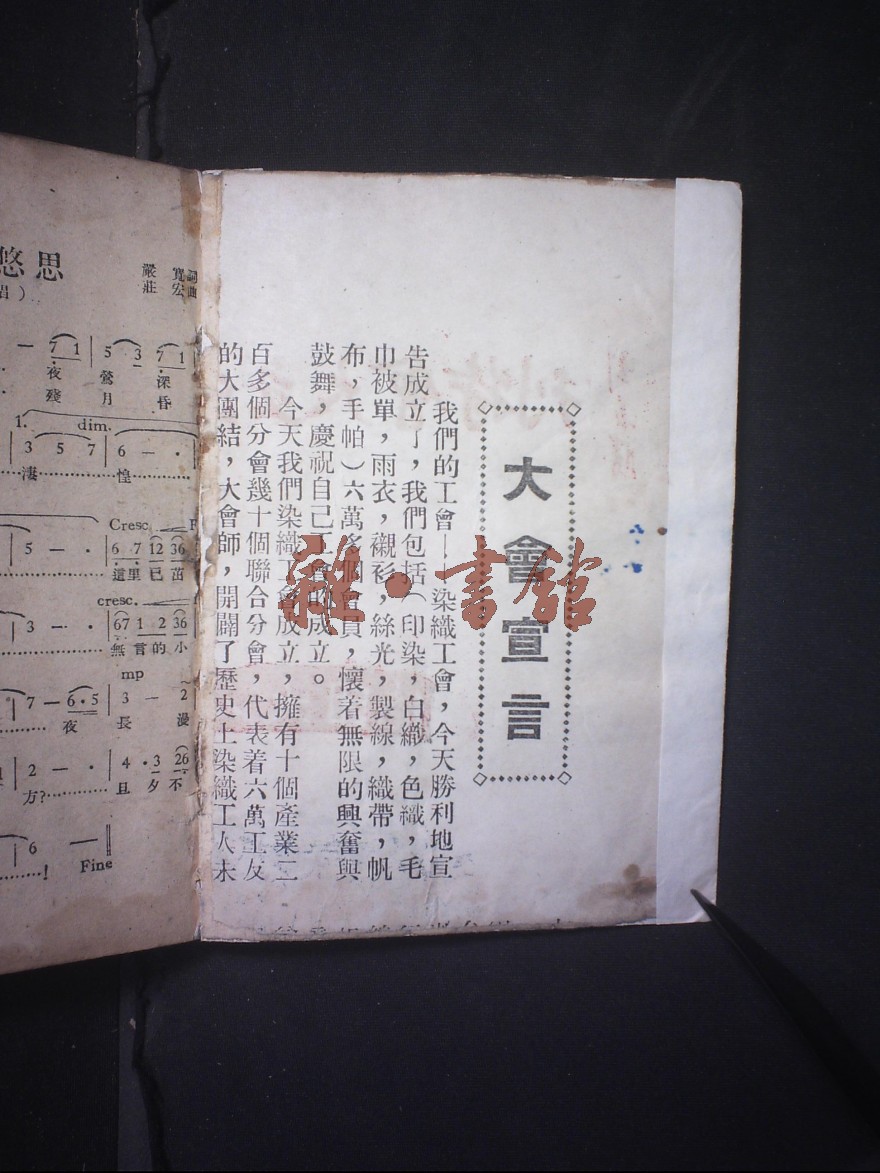 大會宣言
我們的工會—染織工會，今天勝利地宣
告成立了，我們包括（印染，白織，色織，毛
巾被單，雨衣，襯衫，絲光，製線，織帶，帆
布，手帕）六萬多個會員，懷着無限的興奮與
鼓舞，慶祝自己工會的成立。
今天我們染織工會成立，擁有十個產業二
百多個分會幾十個聯合分會，代表着六萬工友
的大團結，大會師，開闢了歷史上染織工人未
雜·書館
悠思
唱）
嚴寬詞
莊宏曲
— 7 1 | 5 3 7 1
夜 鶯 深
殘 月 昏
1. dim.
3 5 7 | 6 — ·
淒 惶
Cresc F
5 — · | 6 7 12 36
這里已茁
cresc.
3 — · | 67 1 2 36
無言的小
mp
7 — 6·5 | 3 — 2
夜 長 漫
2 — · | 4 · 3 26
方? 且 夕 不
6 —
! Fine